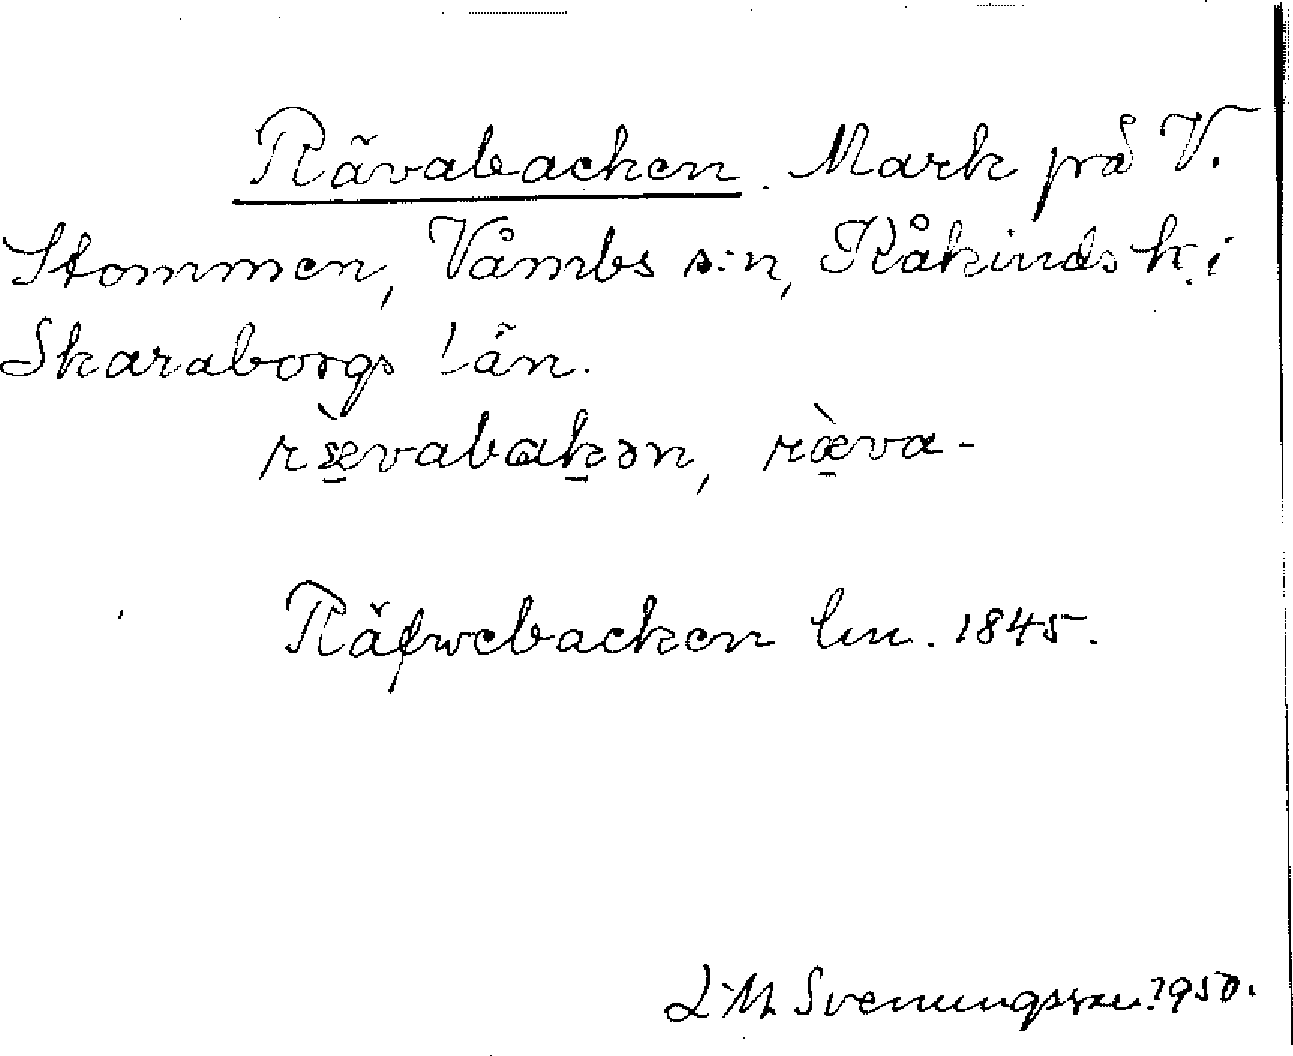 Rävabacken. Mark på V.
Stommen, Våmbs s:n, Kåkinds h. i
Skaraborgs län.
ræ̀vabakən, ræ̀va-
Räfwebacken lm. 1845.
L M Svenungsson. 1950.